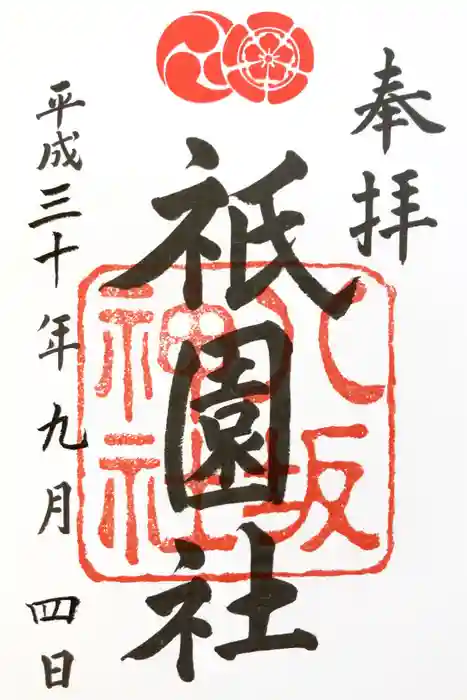 奉拝
祇園社
八坂
神社
平成三十年九月四日